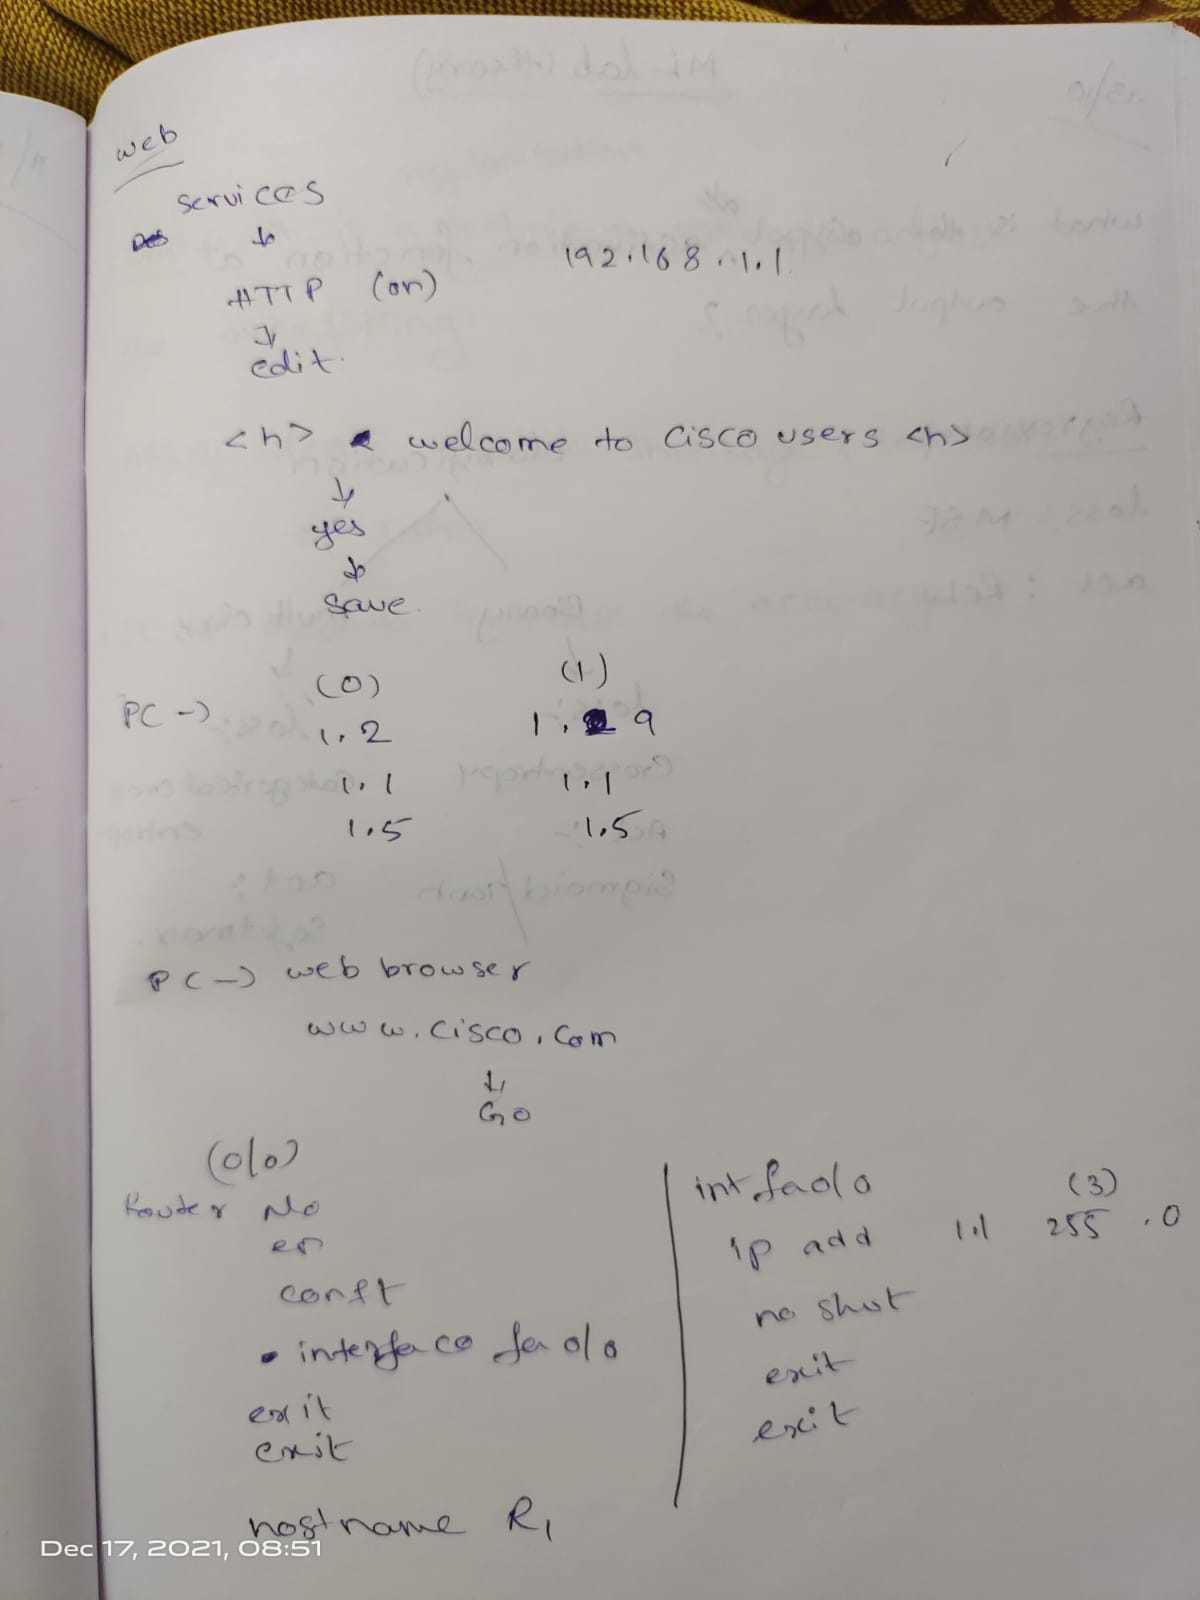 web
services
↓
HTTP (on) 192.168.1.1
↓
edit.
<h> welcome to cisco users <h>
↓
yes
↓
save.
(0) (1)
PC -> 1.2 1. 9
1.1 1.1
1.5 1.5
PC -> web browser
www.cisco.com
↓
Go
(0/0)
Router No
en
conft
• interface fa 0/0
exit
exit
hostname R1
int fa0/0 (3)
ip add 1.1 255 .0
no shut
exit
exit
Dec 17, 2021, 08:51